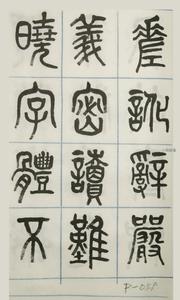 差訛辭嚴
義密讀難
曉字體不
P-058